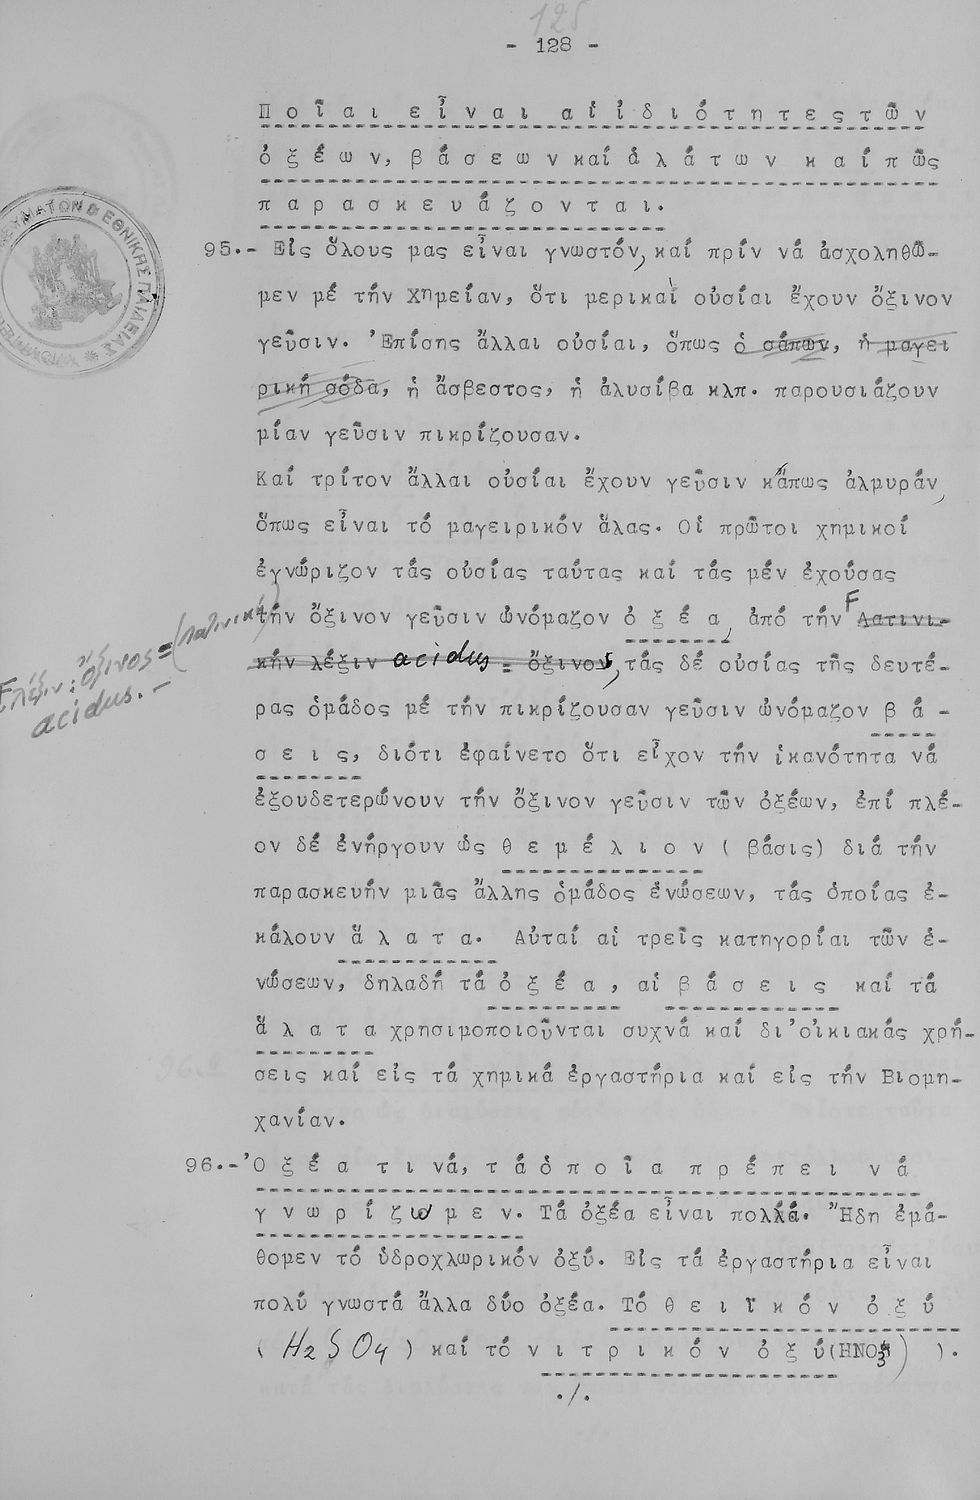 125
- 128 -
Ποῖαι εἶναι αἱ ἰδιότητες τῶν
ὀξέων, βάσεων καί ἁλάτων καί πῶς
παρασκευάζονται.
95.- Εἰς ὅλους μας εἶναι γνωστόν, καί πρίν νά ἀσχοληθῶ-
μεν μέ τήν Χημείαν, ὅτι μερικαί οὐσίαι ἔχουν ὄξινον
γεῦσιν. Ἐπίσης ἄλλαι οὐσίαι, ὅπως ὁ σάπων, ἡ μαγει
ρική σόδα, ἡ ἄσβεστος, ἡ ἀλυσίβα κλπ. παρουσιάζουν
μίαν γεῦσιν πικρίζουσαν.
Καί τρίτον ἄλλαι οὐσίαι ἔχουν γεῦσιν κάπως ἁλμυράν,
ὅπως εἶναι τό μαγειρικόν ἅλας. Οἱ πρῶτοι χημικοί
ἐγνώριζον τάς οὐσίας ταύτας καί τάς μέν ἐχούσας
τήν ὄξινον γεῦσιν ὠνόμαζον ὀξέα, ἀπό τήν Γ Λατινι-
κήν λέξιν acidus = ὄξινος, τάς δέ οὐσίας τῆς δευτέ-
Γ λέξιν: ὄξινος = (λατινική)
acidus.-
ρας ὁμάδος μέ τήν πικρίζουσαν γεῦσιν ὠνόμαζον βά-
σεις, διότι ἐφαίνετο ὅτι εἶχον τήν ἱκανότητα νά
ἐξουδετερώνουν τήν ὄξινον γεῦσιν τῶν ὀξέων, ἐπί πλέ-
ον δέ ἐνήργουν ὡς θεμέλιον (βάσις) διά τήν
παρασκευήν μιᾶς ἄλλης ὁμάδος ἑνώσεων, τάς ὁποίας ἐ-
κάλουν ἅλατα. Αὐταί αἱ τρεῖς κατηγορίαι τῶν ἑ-
νώσεων, δηλαδή τά ὀξέα, αἱ βάσεις καί τά
ἅλατα χρησιμοποιοῦνται συχνά καί δι'οἰκιακάς χρή-
σεις καί εἰς τά χημικά ἐργαστήρια καί εἰς τήν Βιομη-
χανίαν.
96.- Ὀξέα τινά, τά ὁποῖα πρέπει νά
γνωρίζωμεν. Τά ὀξέα εἶναι πολλά. Ἤδη ἐμά-
θομεν τό ὑδροχλωρικόν ὀξύ. Εἰς τά ἐργαστήρια εἶναι
πολύ γνωστά ἄλλα δύο ὀξέα. Τό θειϊκόν ὀξύ
(H2SO4) καί τό νιτρικόν ὀξύ (HNO3) ).
./.